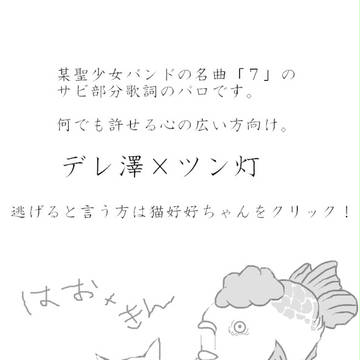 某聖少女バンドの名曲「7」の
サビ部分歌詞のパロです。
何でも許せる心の広い方向け。
デレ澤×ツン灯
逃げると言う方は猫好好ちゃんをクリック！
はお+きん